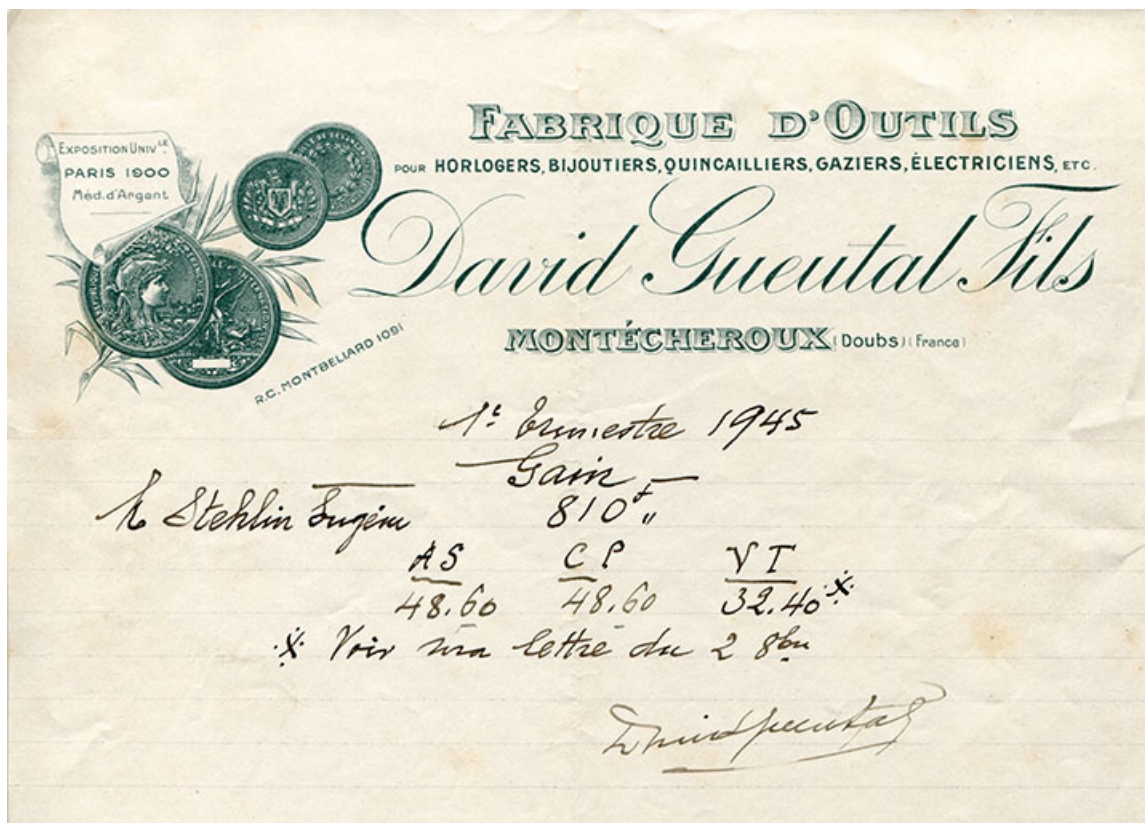 EXPOSITION UNIVLE
PARIS 1900
Méd. d'Argent
FABRIQUE D'OUTILS
POUR HORLOGERS, BIJOUTIERS, QUINCAILLIERS, GAZIERS, ÉLECTRICIENS, ETC.
David Gueutal Fils
MONTÉCHEROUX (Doubs) (France)
R.C. MONTBELIARD 1091
1e Trimestre 1945
Gain
M Stehlin Eugène 810f "
AS CP VT
48.60 48.60 32.40 ※
※ Voir ma lettre du 2 8bre
David Gueutal